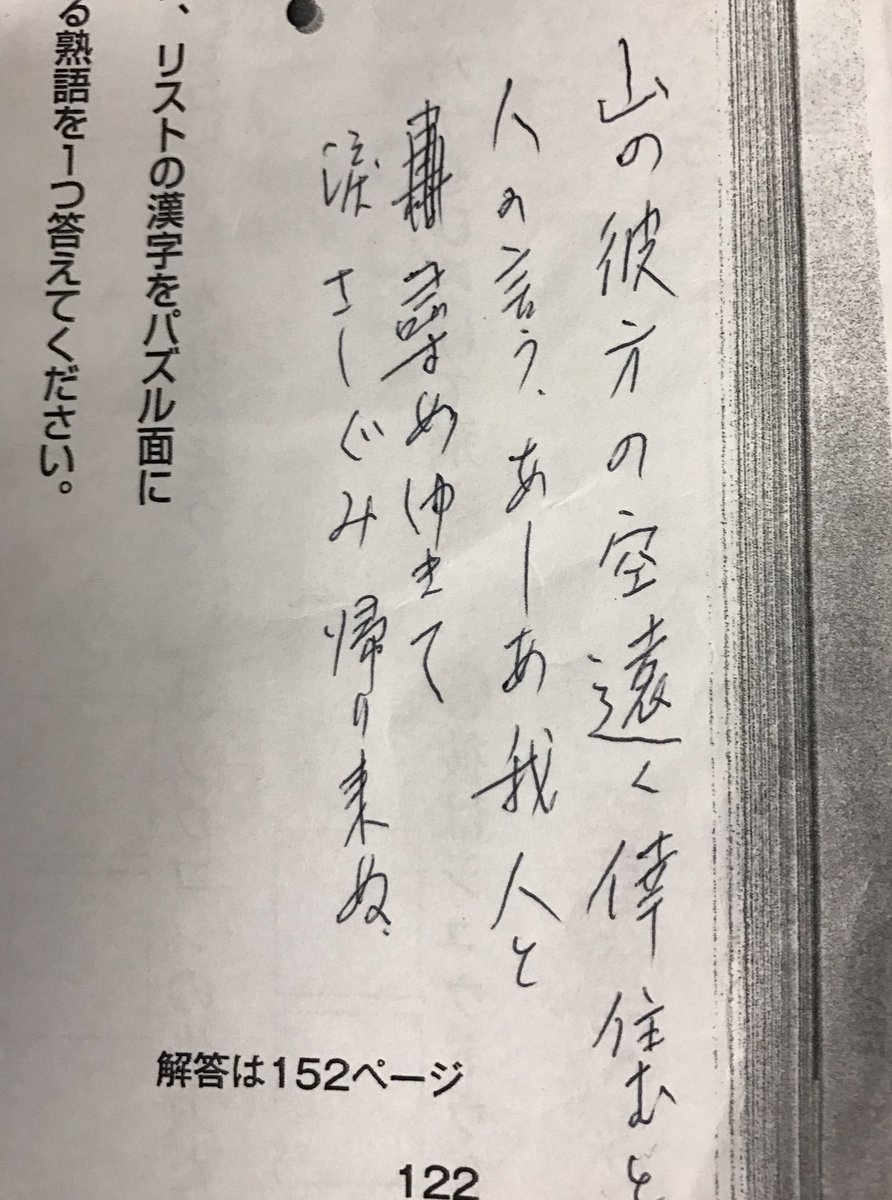 山の彼方の空遠く倖住むと
人の言う、あーあ我人と
尋めゆきて
涙さしぐみ帰り来ぬ、
、リストの漢字をパズル面に
る熟語を1つ答えてください。
解答は152ページ
122